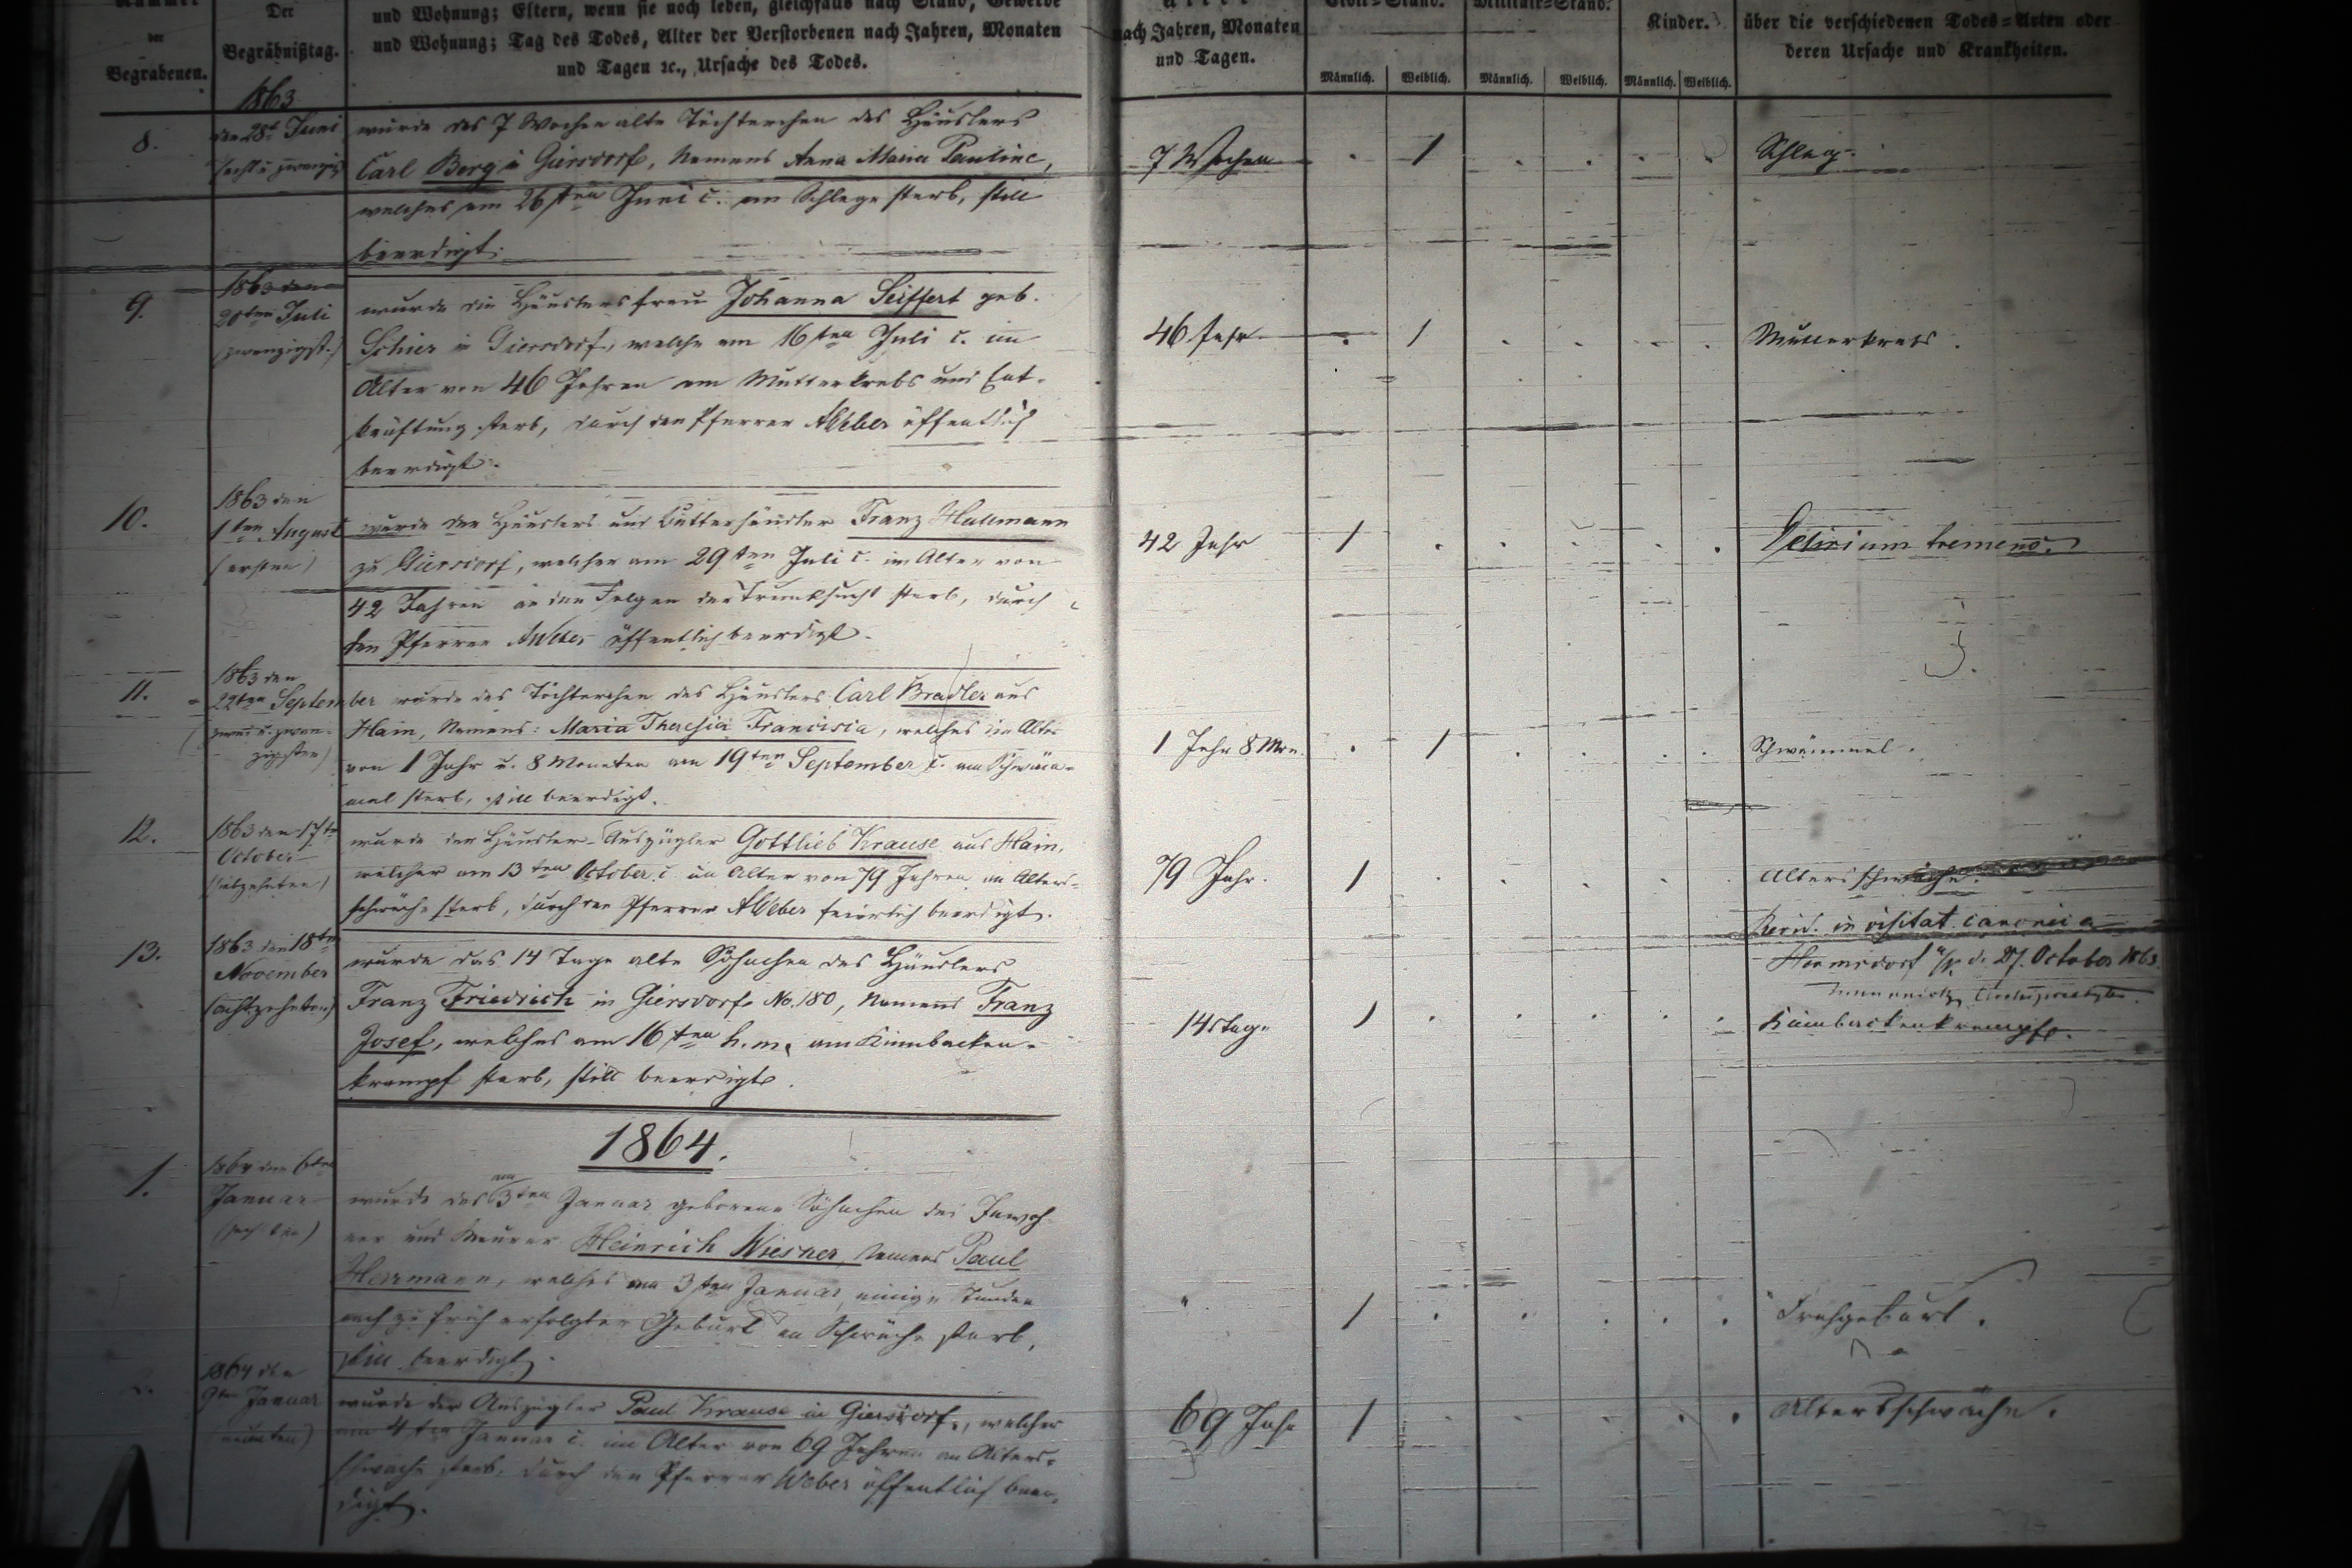 Der
Begräbnißtag.
der
Begrabenen.
und Wohnung; Eltern, wenn sie noch leben, gleichfalls nach Stand, Gewerbe
und Wohnung; Tag des Todes, Alter der Verstorbenen nach Jahren, Monaten
und Tagen ꝛc., Ursache des Todes.
nach Jahren, Monaten
und Tagen.
Civil=Stand.
Militair=Stand.
Kinder.
Männlich. Weiblich. Männlich. Weiblich. Männlich. Weiblich.
über die verschiedenen Todes=Arten oder
deren Ursache und Krankheiten.
1863
8.
den 28t Juni
wurde das 7 Wochen alte Töchterchen des Häuslers
Carl Berg in Giersdorf, Namens Anna Maria Pauline,
welches am 26sten Juni c. am Schlage starb, still
beerdigt.
7 Wochen
1
Schlag.
9.
1863 den
20ten Juli
(zwanzigst.)
wurde die Häuslersfrau Johanna Seiffert geb.
Schier in Giersdorf, welche am 16ten Juli c. im
Alter von 46 Jahren am Mutterkrebs und Ent-
kräftung starb, durch den Pfarrer AWeber öffentlich
beerdigt.
46 Jahr
1
Mutterkrebs.
10.
1863 den
1ten August
(ersten)
wurde der Häusler und Butterhändler Franz Hallmann
zu Giersdorf, welcher am 29ten Juli c. im Alter von
42 Jahren an den Folgen der Trunksucht starb, durch
den Pfarrer AWeber öffentlich beerdigt.
42 Jahr
1
Delirium tremens.
11.
1863 den
22ten September wurde das Töchterchen des Häuslers Carl Bradler aus
(zwei u. zwan-
zigsten)
Hain, Namens: Maria Theresia Francisca, welches im Alter
von 1 Jahr u. 8 Monaten am 19ten September c. am Schwäm-
mel starb, still beerdigt.
1 Jahr 8 Mon.
1
Schwämmel.
12.
1863 den 17ten
October
(siebzehnten)
wurde der Häusler-Auszügler Gottlieb Krause aus Hain,
welcher am 13ten October c. im Alter von 79 Jahren an Alters-
schwäche starb, durch den Pfarrer AWeber feierlich beerdigt.
79 Jahr.
1
Altersschwäche.
in visitat. canonica
Hermsdorf d. 27. October 1863.
13.
1863 den 18ten
November
(achtzehnten)
wurde das 14 Tage alte Söhnchen des Häuslers
Franz Friedrich in Giersdorf No. 180, Namens Franz
Josef, welches am 16ten h. m. am Kinnbacken-
krampf starb, still beerdigt.
14 Tage
1
Kinnbackenkrampf.
1864.
1.
1864 den 6ten
Januar
(sechsten)
wurde das am 3ten Januar geborene Söhnchen des Inwoh-
ner und Maurer Heinrich Wiesner, Namens Paul
Herrmann, welches am 3ten Januar, einige Stunden
nach zu früh erfolgter Geburt an Schwäche starb,
still beerdigt.
"
1
Frühgeburt.
2.
1864 den
9ten Januar
(neunten)
wurde der Auszügler Paul Krause in Giersdorf, welcher
am 4ten Januar c. im Alter von 69 Jahren an Alters-
schwäche starb, durch den Pfarrer Weber öffentlich beer-
digt.
69 Jahr
1
Altersschwäche.